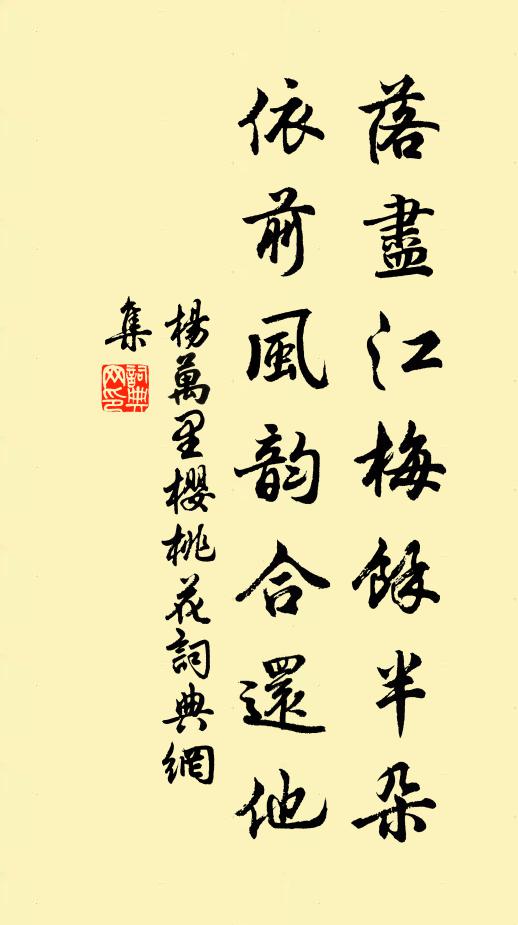 落盡江梅餘半朵
依前風韵合還他
楊萬里櫻桃花詞典網
集
詞典
网印